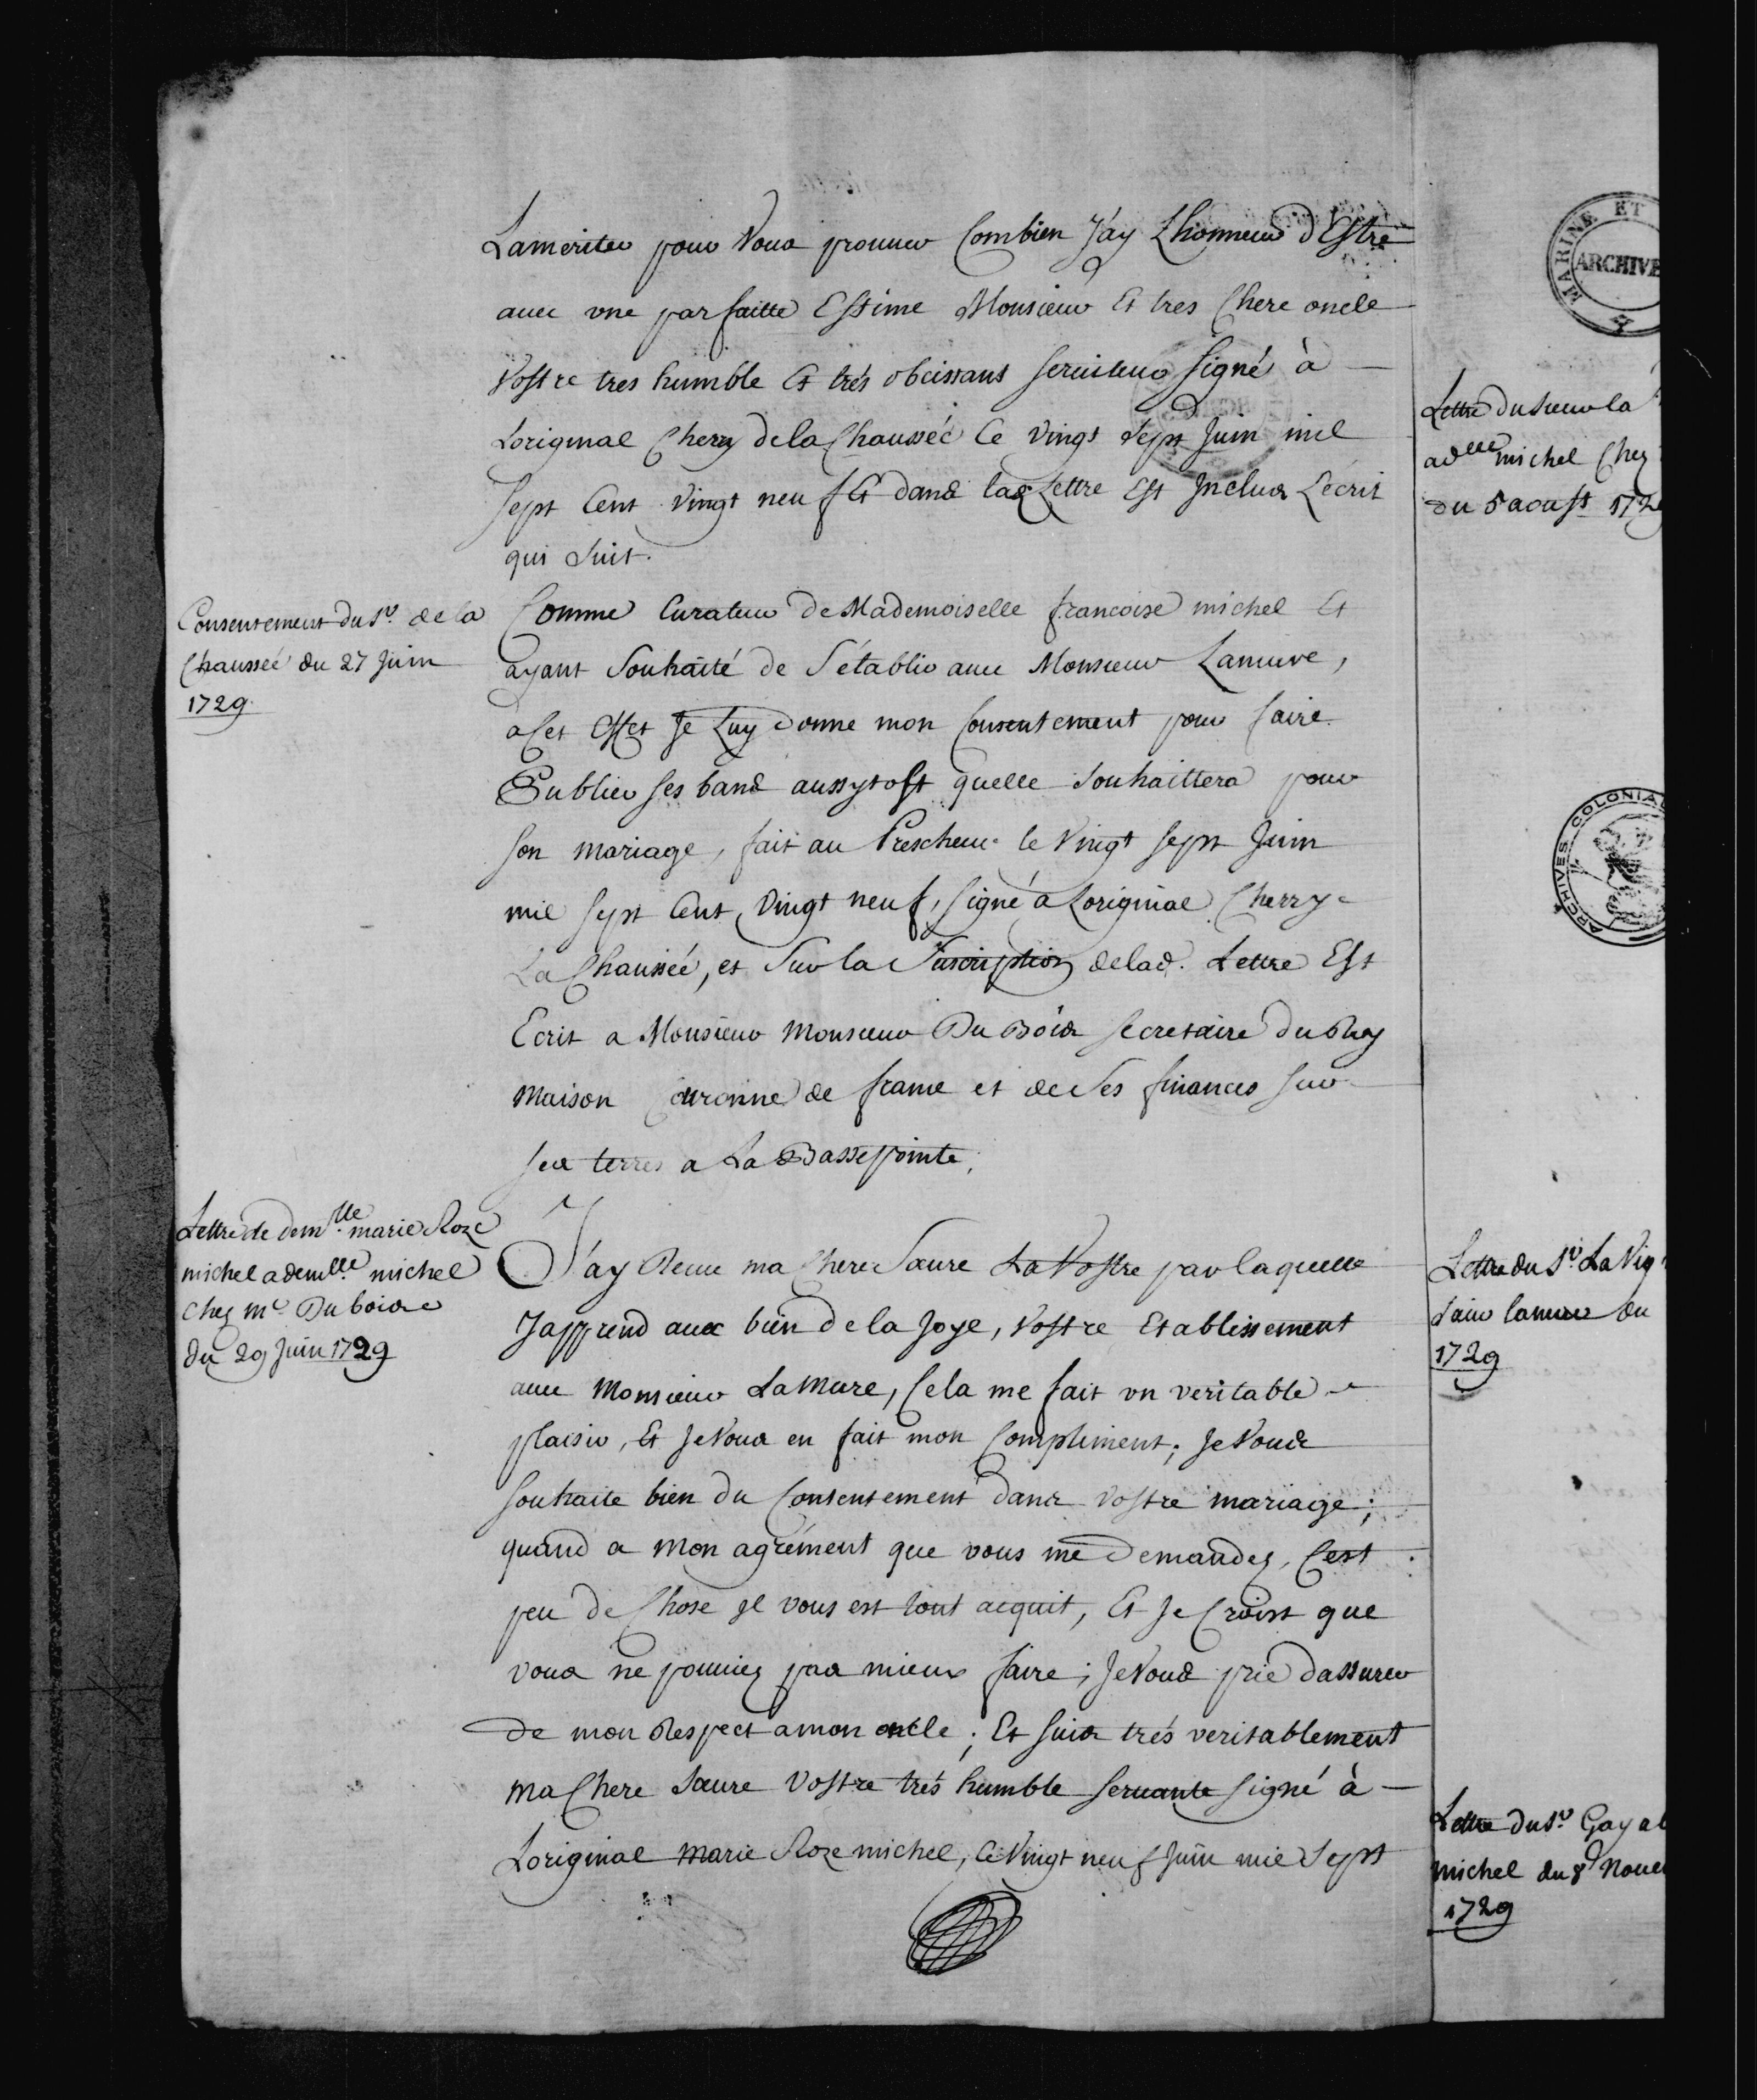 Lameriter pour Vous prouuer Combien J'ay Lhonneur d'Estre
auec vne parfaitte Estime Monsieur Et tres Chere oncle
Vostre tres humble Et trés obeissant seruiteur Signé à
Loriginal Chery dela Chaussée Ce Vingt Sept Juin mil
Sept Cent Vingt neuf Et dans lad Lettre Est Inclus L'écrit
qui Suit.
Consentement du Sr. de la
Chausseé du 27 Juin
1729.
Comme Curateur de Mademoiselle francoise michel Et
ayant Souhaité de S'établir auec Monsieur Lamure,
a Cet Effet Je Luy Donne mon Consentement pour faire
Publier Ses bans aussytost quelle Souhaittera pour
Son mariage, fait au Prescheur le Vingt Sept Juin
mil Sept Cent Vingt neuf, Signé a Loriginal Cherry
La Chaussée, et Sur la Suscription delad. Lettre Est
Ecrit a Monsieur Monsieur Du Bois Secretaire du Roy
Maison Couronne de france et de Ses finances Sur
Ses terres a La Bassepointe.
Lettre de demlle. marie Roze
michel a demlle. michel
Chez Mr Du bois
du 29 Juin 1729
J'ay Receue ma Chere Saure La Vostre par laquelle
Japprend auec bien de la Joye, Vostre Etablissement
auec Monsieur La Mure, Cela me fait vn veritable
plaisir, Et Je Vous en fait mon Compliment; Je Vous
Souhaite bien du Contentement dans Vostre mariage;
quand a Mon agrément que vous me Demandez, C'est
peu de Chose Il vous est tout acquit, Et Je Croist que
vous ne pouuiez pas mieux faire; Je Vous prie dassurer
De mon Respect a mon oncle; Et Suis trés veritablement
Ma Chere Saure Vostre trés humble Seruante Signé à
Loriginal Marie Roze michel, Ce Vingt neuf Juin mil Sept
MARINE ET
ARCHIVE
Lettre du Sieur la
a dlle michel Chez
du 5 aoust 172
ARCHIVES COLONIA
Lettre du Sr. La Vig
Sieur lamure du
1729
Lettre du Sr. Gay a
Michel du 8 Noue
1729